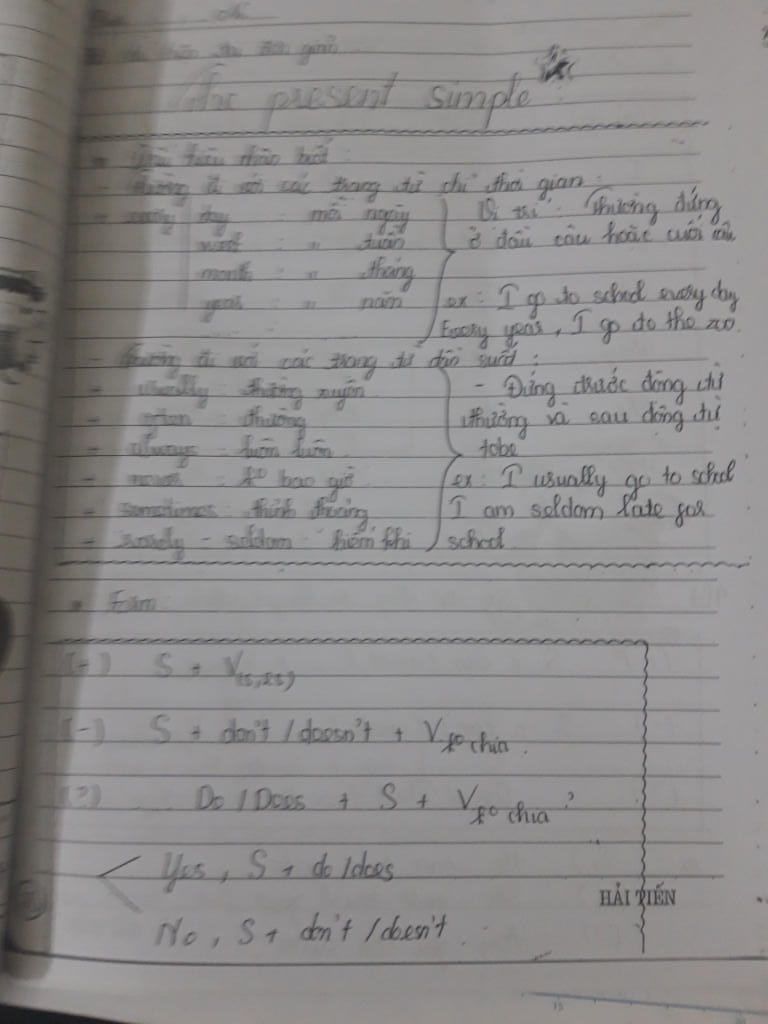 đơn giản
The present simple
* Dấu hiệu nhận biết :
- thường đi với các trạng từ chỉ thời gian :
- every day : mỗi ngày
week : " tuần
month : " tháng
year : " năm
Vị trí : Thường đứng
ở đầu câu hoặc cuối câu
ex : I go to school every day
Every year , I go to the zo.
- thường đi với các trạng từ tần suất :
- usually : thường xuyên
- often : thường
- always : luôn luôn
- never : ko bao giờ
- sometimes : thỉnh thoảng
- rarely - seldom : hiếm khi
- Đứng trước động từ
thường và sau động từ
tobe
ex : I usually go to school
I am seldom late for
school
* Form
(+) S + V(s,es)
(-) S + don't / doesn't + Vko chia .
(?) Do / Does + S + Vko chia ?
Yes , S + do / does
No , S + don't / doesn't .
HẢI TIẾN
15